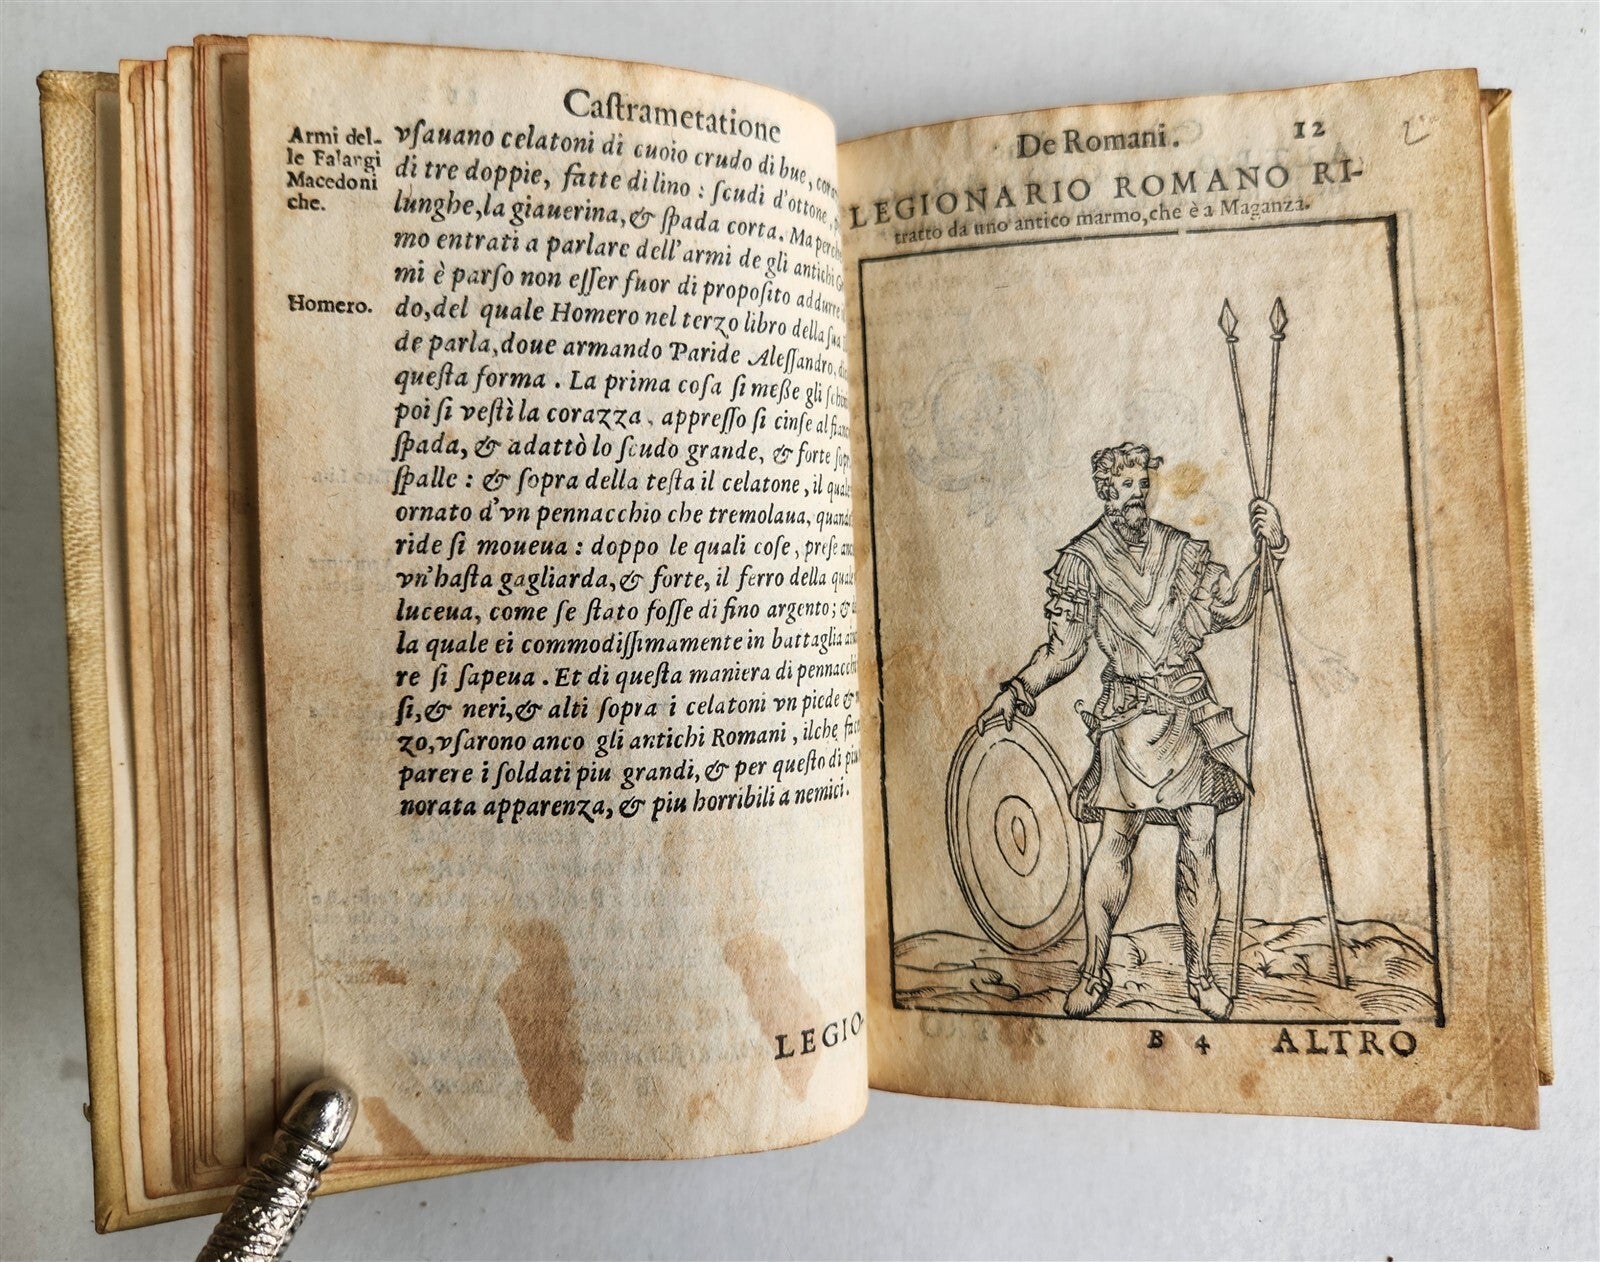 Caſtrametatione
Armi del-
le Falangi
Macedoni
che.
vſauano celatoni di cuoio crudo di bue,
di tre doppie, fatte di lino : ſcudi d'ottone,
lunghe, la giauerina, & ſpada corta. Ma perche
mo entrati a parlare dell'armi de gli antichi
mi è parſo non eſſer fuor di propoſito addurre
Homero.
do, del quale Homero nel terzo libro della ſua
de parla, doue armando Paride Aleſſandro,
queſta forma . La prima coſa ſi meſſe gli
poi ſi veſtì la corazza, appreſſo ſi cinſe al
ſpada, & adattò lo ſcudo grande, & forte
ſpalle : & ſopra della teſta il celatone, il
ornato d'vn pennacchio che tremolaua,
ride ſi moueua : doppo le quali coſe, preſe
vn'haſta gagliarda, & forte, il ferro della
luceua, come ſe ſtato foſſe di fino argento; &
la quale ei commodiſſimamente in battaglia
re ſi ſapeua . Et di queſta maniera di
ſi, & neri, & alti ſopra i celatoni vn piede &
zo, vſarono anco gli antichi Romani, ilche
parere i ſoldati piu grandi, & per queſto di
norata apparenza, & piu horribili a nemici.
LEGIO
De Romani. 12
LEGIONARIO ROMANO RI-
tratto da uno antico marmo, che è a Maganza.
B 4 ALTRO